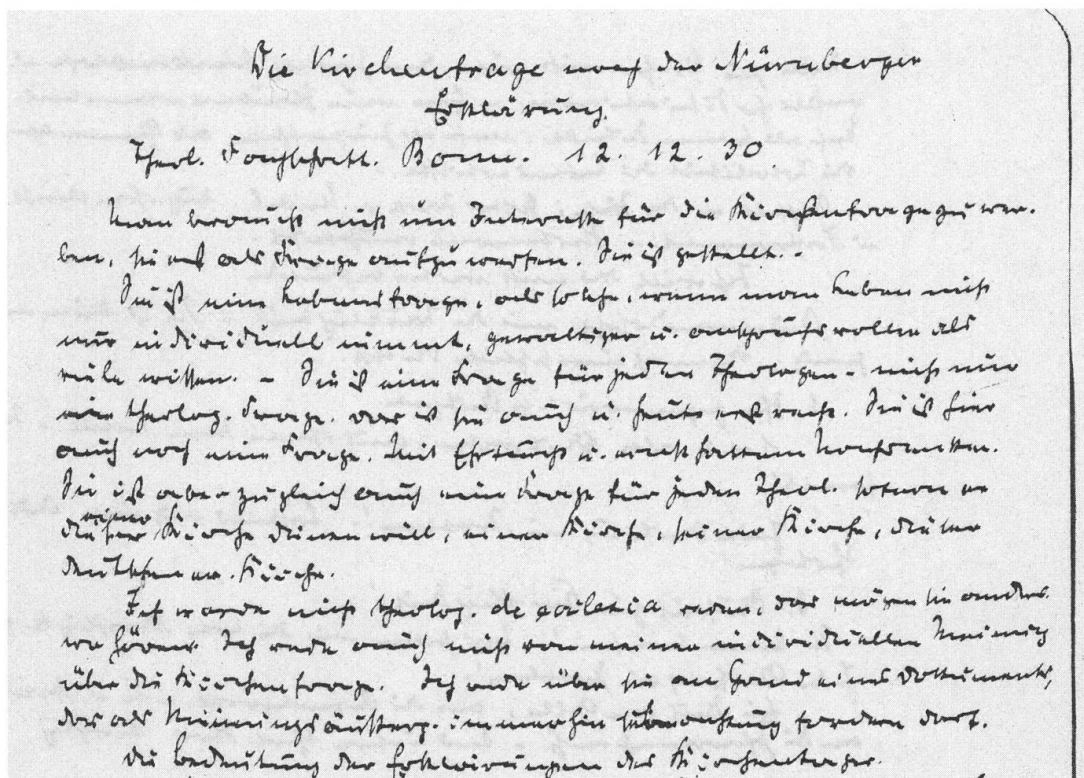 Die Kirchenfrage nach der Nürnberger
Erklärung.
Theol. Fachschaft. Bonn. 12. 12. 30.
Man braucht nicht um Interesse für die Kirchenfrage zu wer-
ben, sie erst als Frage aufzuwerfen. Sie ist gestellt. -
Sie ist eine Lebensfrage, als solche, wenn man Leben nicht
nur individuell nimmt, gewaltiger u. anspruchsvoller als
viele wissen. - Sie ist eine Frage für jeden Theologen - nicht nur
eine theolog. Frage. das ist sie auch u. heute erst recht. Sie ist hier
auch noch eine Frage. Mit Ehrfurcht u.
Sie ist aber zugleich auch eine Frage für jeden Theol. sofern er
einer Kirche dienen will, einer Kirche, seiner Kirche, dieser
deutschen ev. Kirche.
Ich werde nicht theolog. de ecclesia reden, das mögen sie anders-
wo hören. Ich rede auch nicht von meiner individuellen Meinung
über die Kirchenfrage. Ich rede über sie an Hand eines Dokuments,
das als Meinungsäußerg. immerhin Beachtung fordern darf.
Die Bedeutung der Erklärungen des Kirchentages.